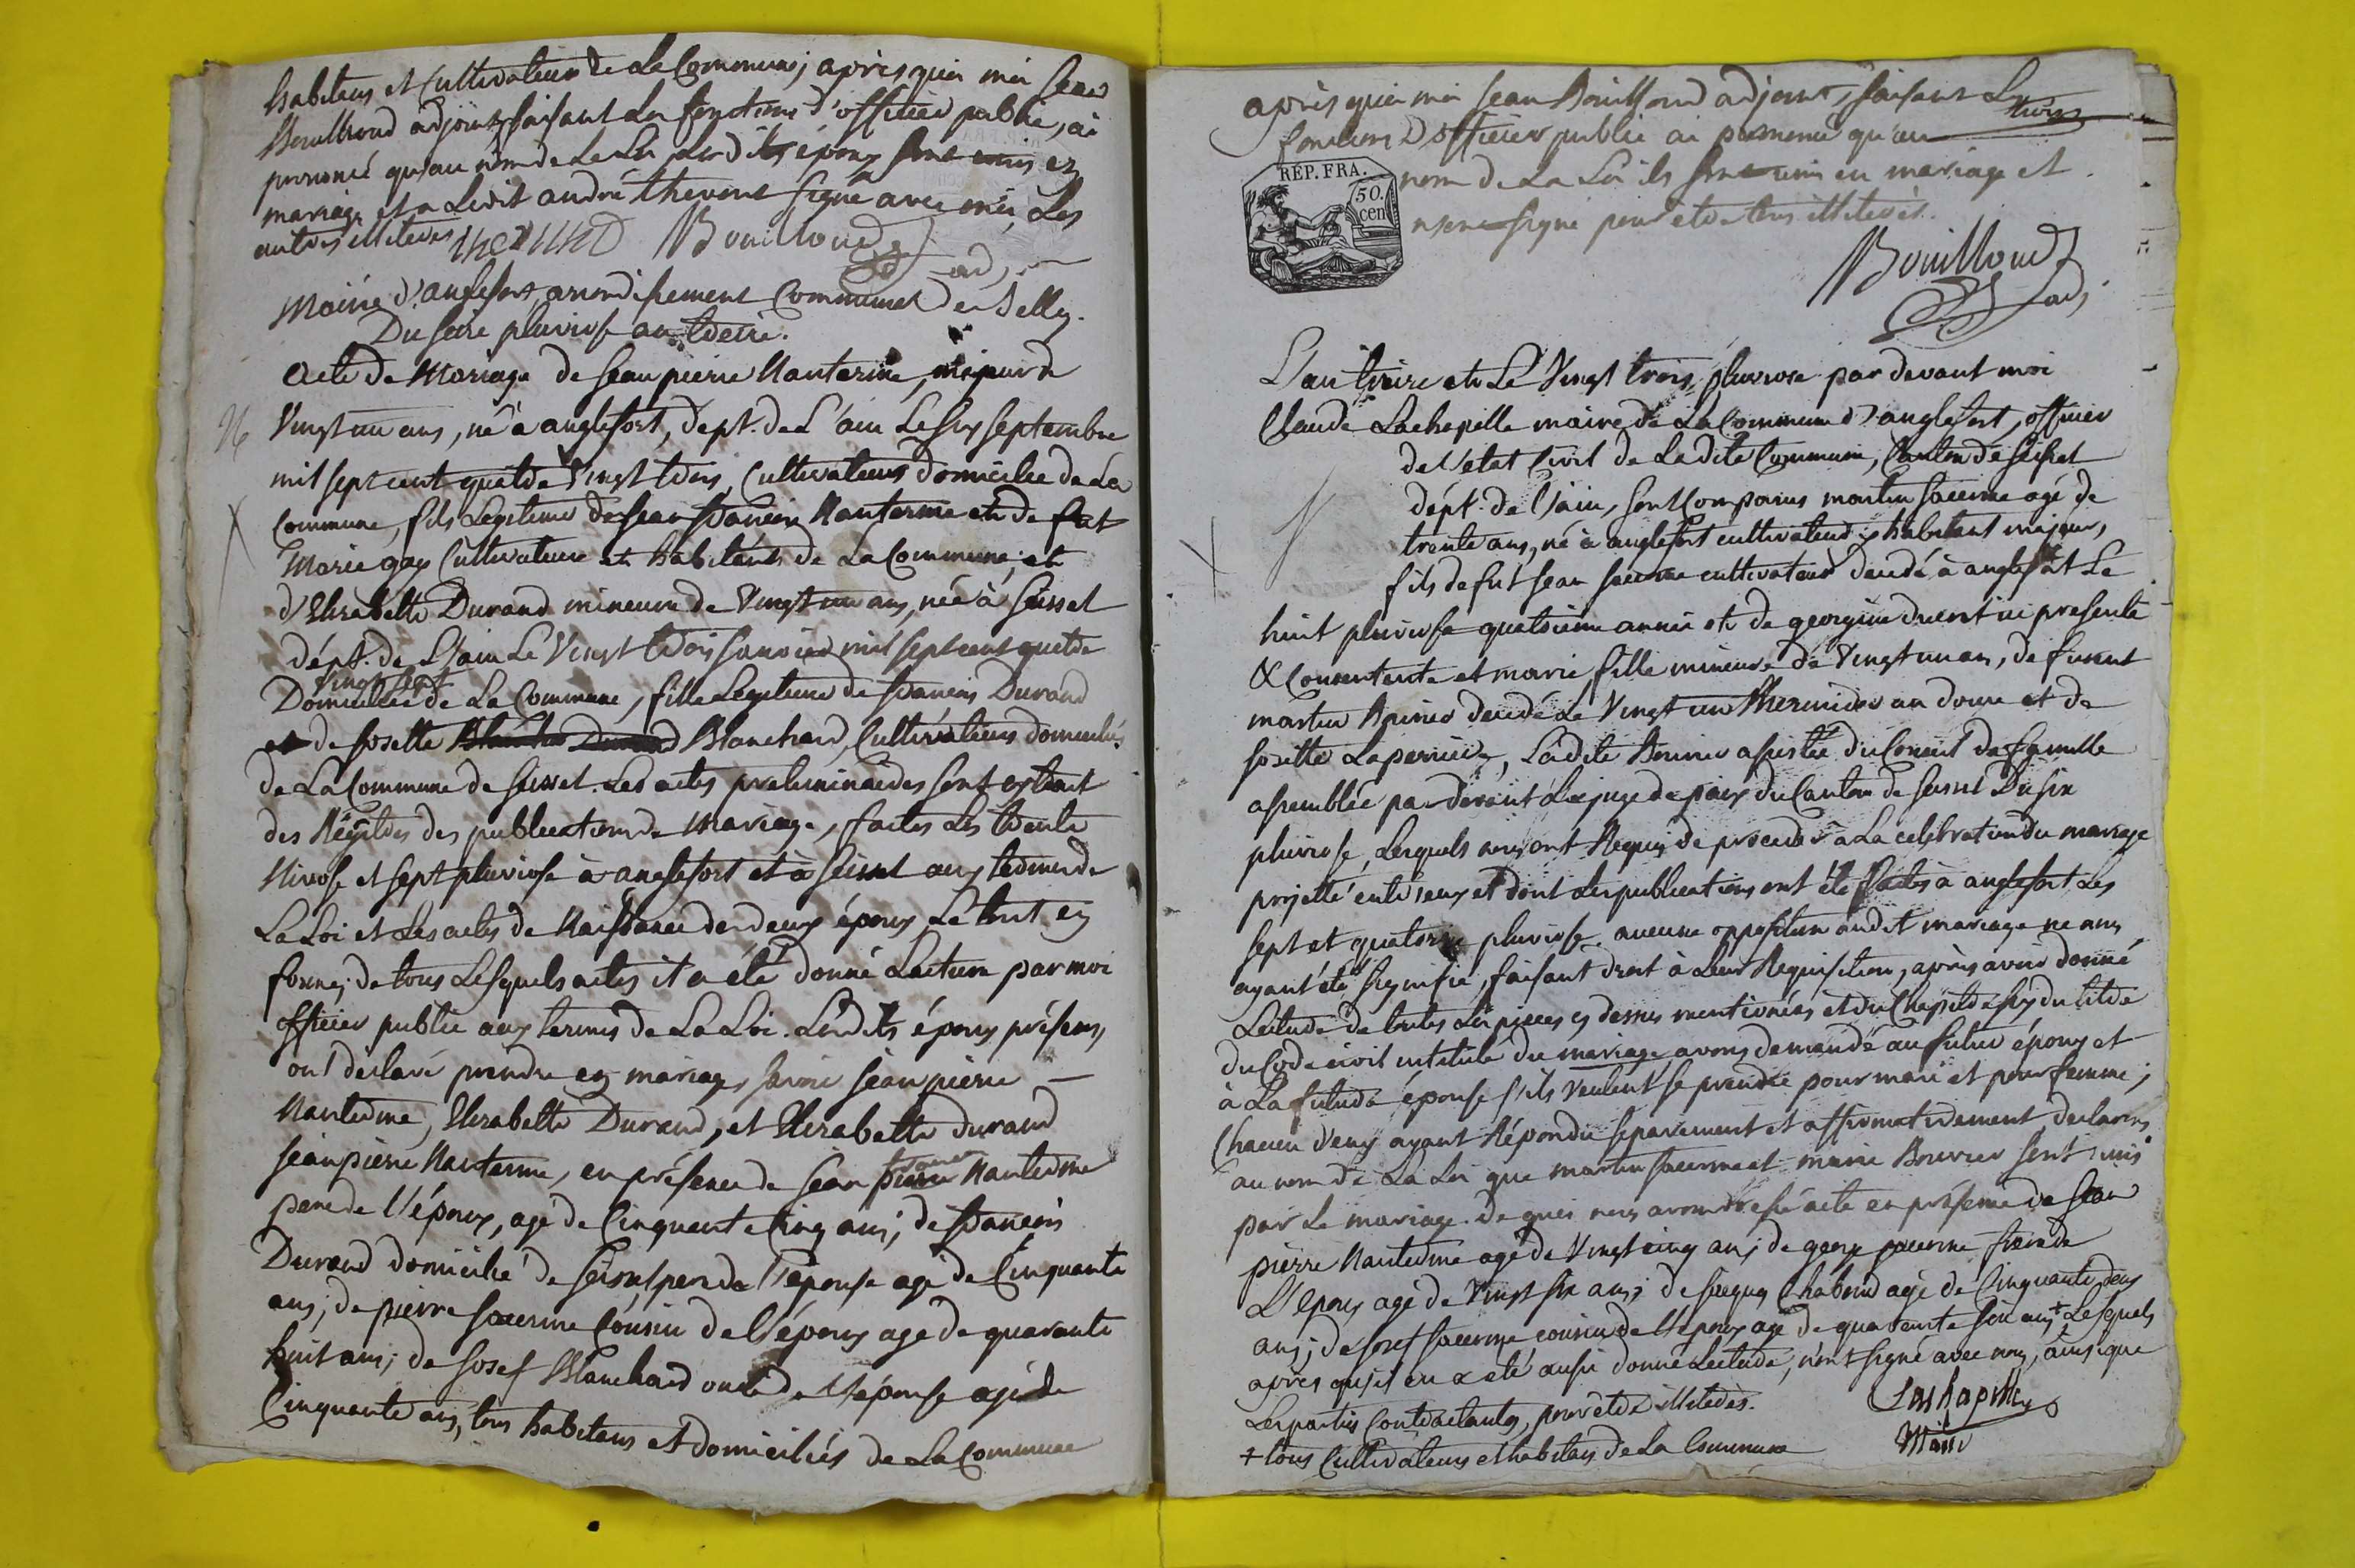 habitans et Cultivateurs de La Commune; après quoi moi Jean
Bouilloud adjoint faisant Les fonctions d'officier public, ai
prononcé qu'au nom de La Loi Lesdits époux sont unis en
mariage et a Ledit andré thevenot signé avec moi, Les
autres illiterés Bouilloud adj
Mairie d'anglefort, arrondissement Communal de Belley.
Du seize pluviose an treize.
Acte de Mariage de Jean pierre Nanterme, majeur de
Vingt un ans, né à anglefort, dept. de L'ain Le six septembre
mil sept cent quatre Vingt trois, Cultivateur domicilié de La
Commune, fils Legitime de Jean francois Nanterme et de fut
Marie gay Cultivateurs et habitants de La Commune; et
d'Elisabette Durand mineure de Vingt un ans, née à Seissel
dépt. de L'ain Le Vingt trois Janvier mil sept cent quatre
vingt sept
Domiciliée de La Commune, fille Legitime de francois Durand
et de Josette Blanchard, Cultivateurs domiciliés
de La Commune de Seissel. Les actes preliminaires sont extrait
des Régitres des publications de Mariage, faites Les trente
Nivose et sept pluviose à anglefort et à Seissel aux termes de
La Loi et Les actes de Naissance des deux époux Le tout en
forme; de tous Lesquels actes il a été donné Lecture par moi
officier public aux termes de La Loi. Lesdits époux présens,
ont declaré prendre en mariage, savoir Jean pierre —
Nanterme, Elisabette Durand, et Elisabette durand
Jean pierre Nanterme, en présence de Jean francois Nanterme
pere de l'époux, agé de Cinquante Cinq ans; de francois
Durand domicilié de Seissel pere de l'épouse agé de Cinquante
ans; de pierre Jacerme Cousin de l'époux agé de quarante
huit ans; de Josef Blanchard oncle de l'épouse agé de
Cinquante ans, tous habitans et domiciliés de La Commune
après quoi moi Jean Bouilloud adjoint, faisant Les
fonctions D'officier public ai prononcé qu'au
RÉP. FRA.
50.
cen
nom de La Loi ils sont unis en mariage et
n'ont signé pour etre tous illiterés.
Bouilloud
adj.
L'an treize et Le Vingt trois pluviose par devant moi
Claude Lachapelle maire de La Commune d'anglefort, officier
de l'etat Civil de Ladite Commune, Canton de Seissel
dépt. de l'ain, sont Comparus martin Jacerme agé de
trente ans, né à anglefort cultivateur y habitant majeur,
fils de fut Jean Jacerme cultivateur decedé à anglefort Le
huit pluviose quatrieme année et de georgine ici presente
& Consentente et marie fille mineure de Vingt un ans, de
martin Bovier decedé Le Vingt un thermidor an douze et de
Josette Laperriere, Ladite Bovier assistée du Conseil de famille
assemblée par devant Le juge de paix du Canton de Seissel Du six
pluviose, Lesquels nous ont Requis de proceder à La celebration du mariage
projetté entr'eux et dont Les publications ont été faites à anglefort Les
sept et quatorze pluviose. aucune opposition audit mariage ne nous
ayant été signifié, faisant droit à Leur Requisition, après avoir donné
Lecture de toutes Les pieces cy dessus mentionées et du Chapitre six du titre
du Code civil intitulé du mariage avons demandé au futur époux et
à La future épouse s'ils veulent se prendre pour mari et pour femme;
Chacun d'eux ayant Répondu separement et affirmativement, declarons
au nom de La Loi que martin Jacerme et marie Bouvier sont unis
par Le mariage. de quoi nous avons dressé acte en présence de Jean
pierre Nanterme agé de Vingt cinq ans; de george Jacerme frere de
L'epoux agé de Vingt six ans; de Jacques Chaboud agé de Cinquante deux
ans; de Josef Jacerme cousin de l'epoux agé de quarante six ans, + Lesquels
après qu'il en a été aussi donné Lecture, n'ont signé avec nous, ainsi que
Les parties Contractantes, pour etre illiterés.
+ tous Cultivateurs et habitans de La Commune
Lachapelle
Maire